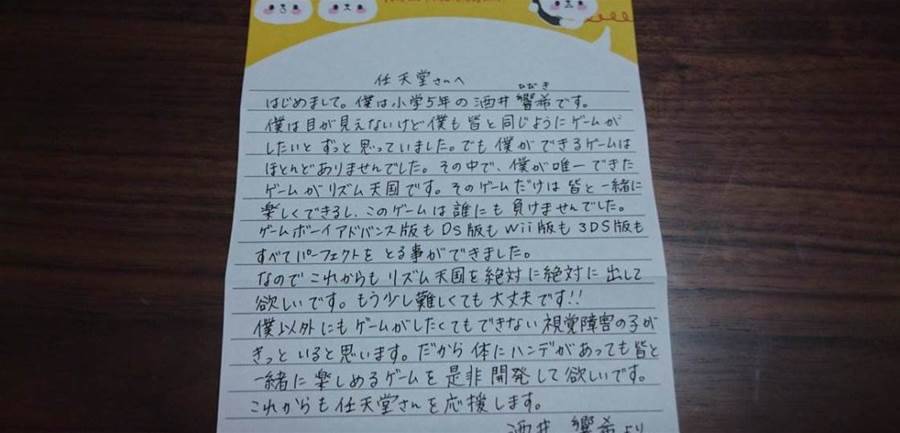 任天堂さんへ
ひびき
はじめまして。僕は小学5年の酒井響希です。
僕は目が見えないけど僕も皆と同じようにゲームが
したいとずっと思っていました。でも僕ができるゲームは
ほとんどありませんでした。その中で、僕が唯一できた
ゲームがリズム天国です。そのゲームだけは皆と一緒に
楽しくできるし、このゲームは誰にも負けませんでした。
ゲームボーイアドバンス版もDS版もWii版も3DS版も
すべてパーフェクトをとる事ができました。
なのでこれからもリズム天国を絶対に絶対に出して
欲しいです。もう少し難しくても大丈夫です!!
僕以外にもゲームがしたくてもできない視覚障害の子が
きっといると思います。だから体にハンデがあっても皆と
一緒に楽しめるゲームを是非開発して欲しいです。
これからも任天堂さんを応援します。
酒井響希より